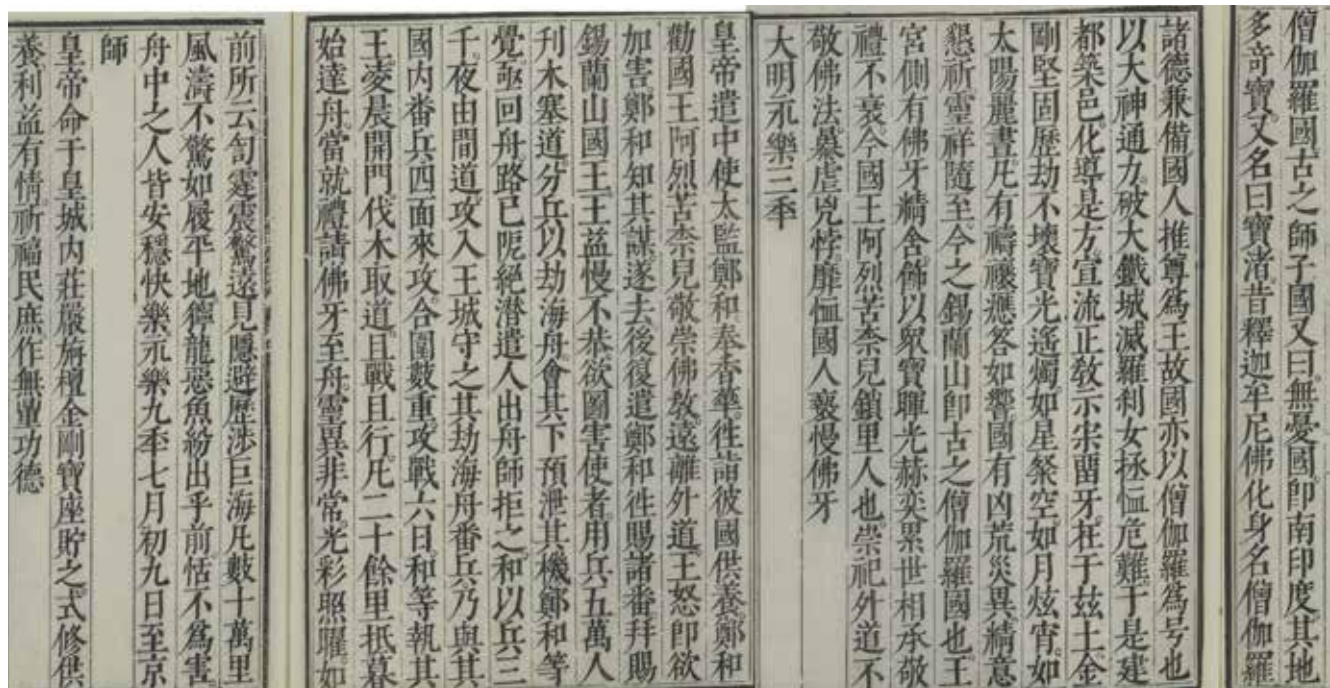 僧伽羅國古之師子國又曰無憂國卽南印度其地
多奇寶又名曰寶渚昔釋迦牟尼佛化身名僧伽羅
諸德兼備國人推尊爲王故國亦以僧伽羅爲号也
以大神通力破大鐵城滅羅刹女拯恤危難于是建
都築邑化導是方宣流正敎示宗畱牙在于玆土金
剛堅固歷劫不壞寶光遙燭如星粲空如月炫宵如
太陽麗晝凡有禱禳應答如響國有凶荒災異精意
懇祈靈祥隨至今之錫蘭山卽古之僧伽羅國也王
宮側有佛牙精舍飾以眾寶暉光赫奕累世相承敬
禮不衰今國王阿烈苦柰兒鎖里人也崇祀外道不
敬佛法暴虐兇悖靡恤國人褻慢佛牙
大明永樂三年
皇帝遣中使太監鄭和奉香華徃詣彼國供養鄭和
勸國王阿烈苦柰兒敬崇佛敎遠離外道王怒卽欲
加害鄭和知其謀遂去後復遣鄭和徃賜諸番拜賜
錫蘭山國王王益慢不恭欲圖害使者用兵五萬人
刋木塞道分兵以劫海舟會其下預泄其機鄭和等
覺亟回舟路已阨絕潛遣人出舟師拒之和以兵三
千夜由間道攻入王城守之其劫海舟番兵乃與其
國內番兵四面來攻合圍數重攻戰六日和等執其
王凌晨開門伐木取道且戰且行凡二十餘里抵暮
始達舟當就禮請佛牙至舟靈異非常光彩照曜如
前所云訇霆震驚遠見隱避歷涉巨海凡數十萬里
風濤不驚如履平地獰龍惡魚紛出乎前恬不爲害
舟中之人皆安穩快樂永樂九年七月初九日至京
師
皇帝命于皇城內莊嚴旃檀金剛寶座貯之式修供
養利益有情祈福民庶作無量功德